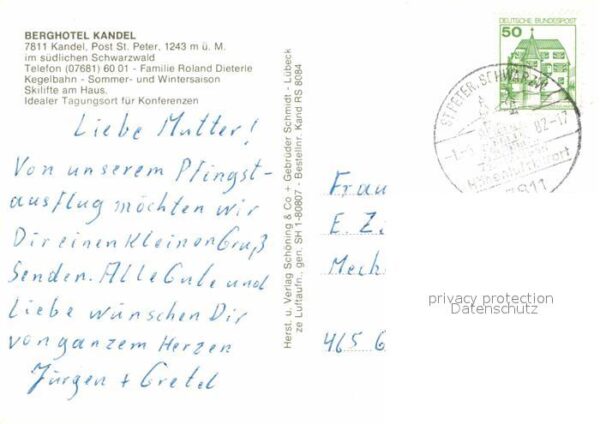 BERGHOTEL KANDEL
7811 Kandel, Post St. Peter, 1243 m ü. M.
im südlichen Schwarzwald
Telefon (07681) 60 01 - Familie Roland Dieterle
Kegelbahn - Sommer- und Wintersaison
Skilifte am Haus.
Idealer Tagungsort für Konferenzen
Liebe Mutter!
Von unserem Pfingst-
ausflug möchten wir
Dir einen Kleinen Gruß
Senden. Alle Gute und
Liebe wünschen Dir
von ganzem Herzen
Jürgen + Gretel
Herst. u. Verlag Schöning & Co + Gebrüder Schmidt - Lübeck
ze Luftaufn., gen. SH 1-80807 - Bestellnr. Kand RS 8084
DEUTSCHE BUNDESPOST
50
ST. PETER, SCHWARZW
82-17
7811
Frau
E. Z
Mech
465 G
privacy protection
Datenschutz